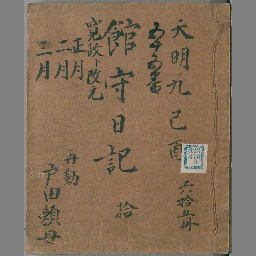 天明九己酉
六拾五冊
館守日記 拾
寛政ト改元
正月
二月
三月
再勤
戸田頼母